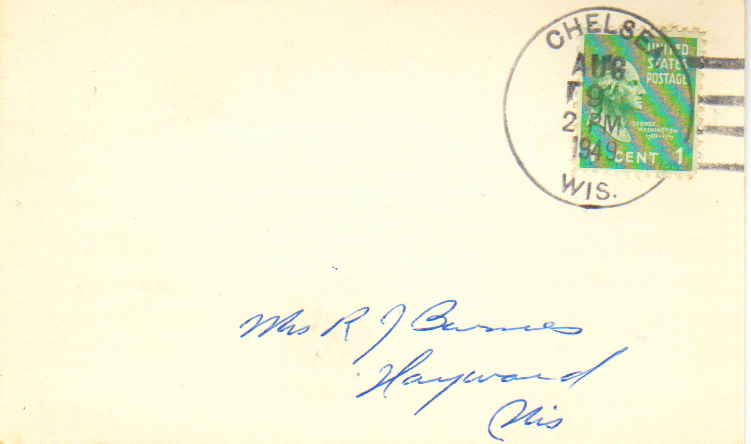 CHELSEA
AUG
9
2 PM
1949
WIS.
UNITED
STATES
POSTAGE
GEORGE
WASHINGTON
CENT 1
Mrs R J Barnes
Hayward
Wis